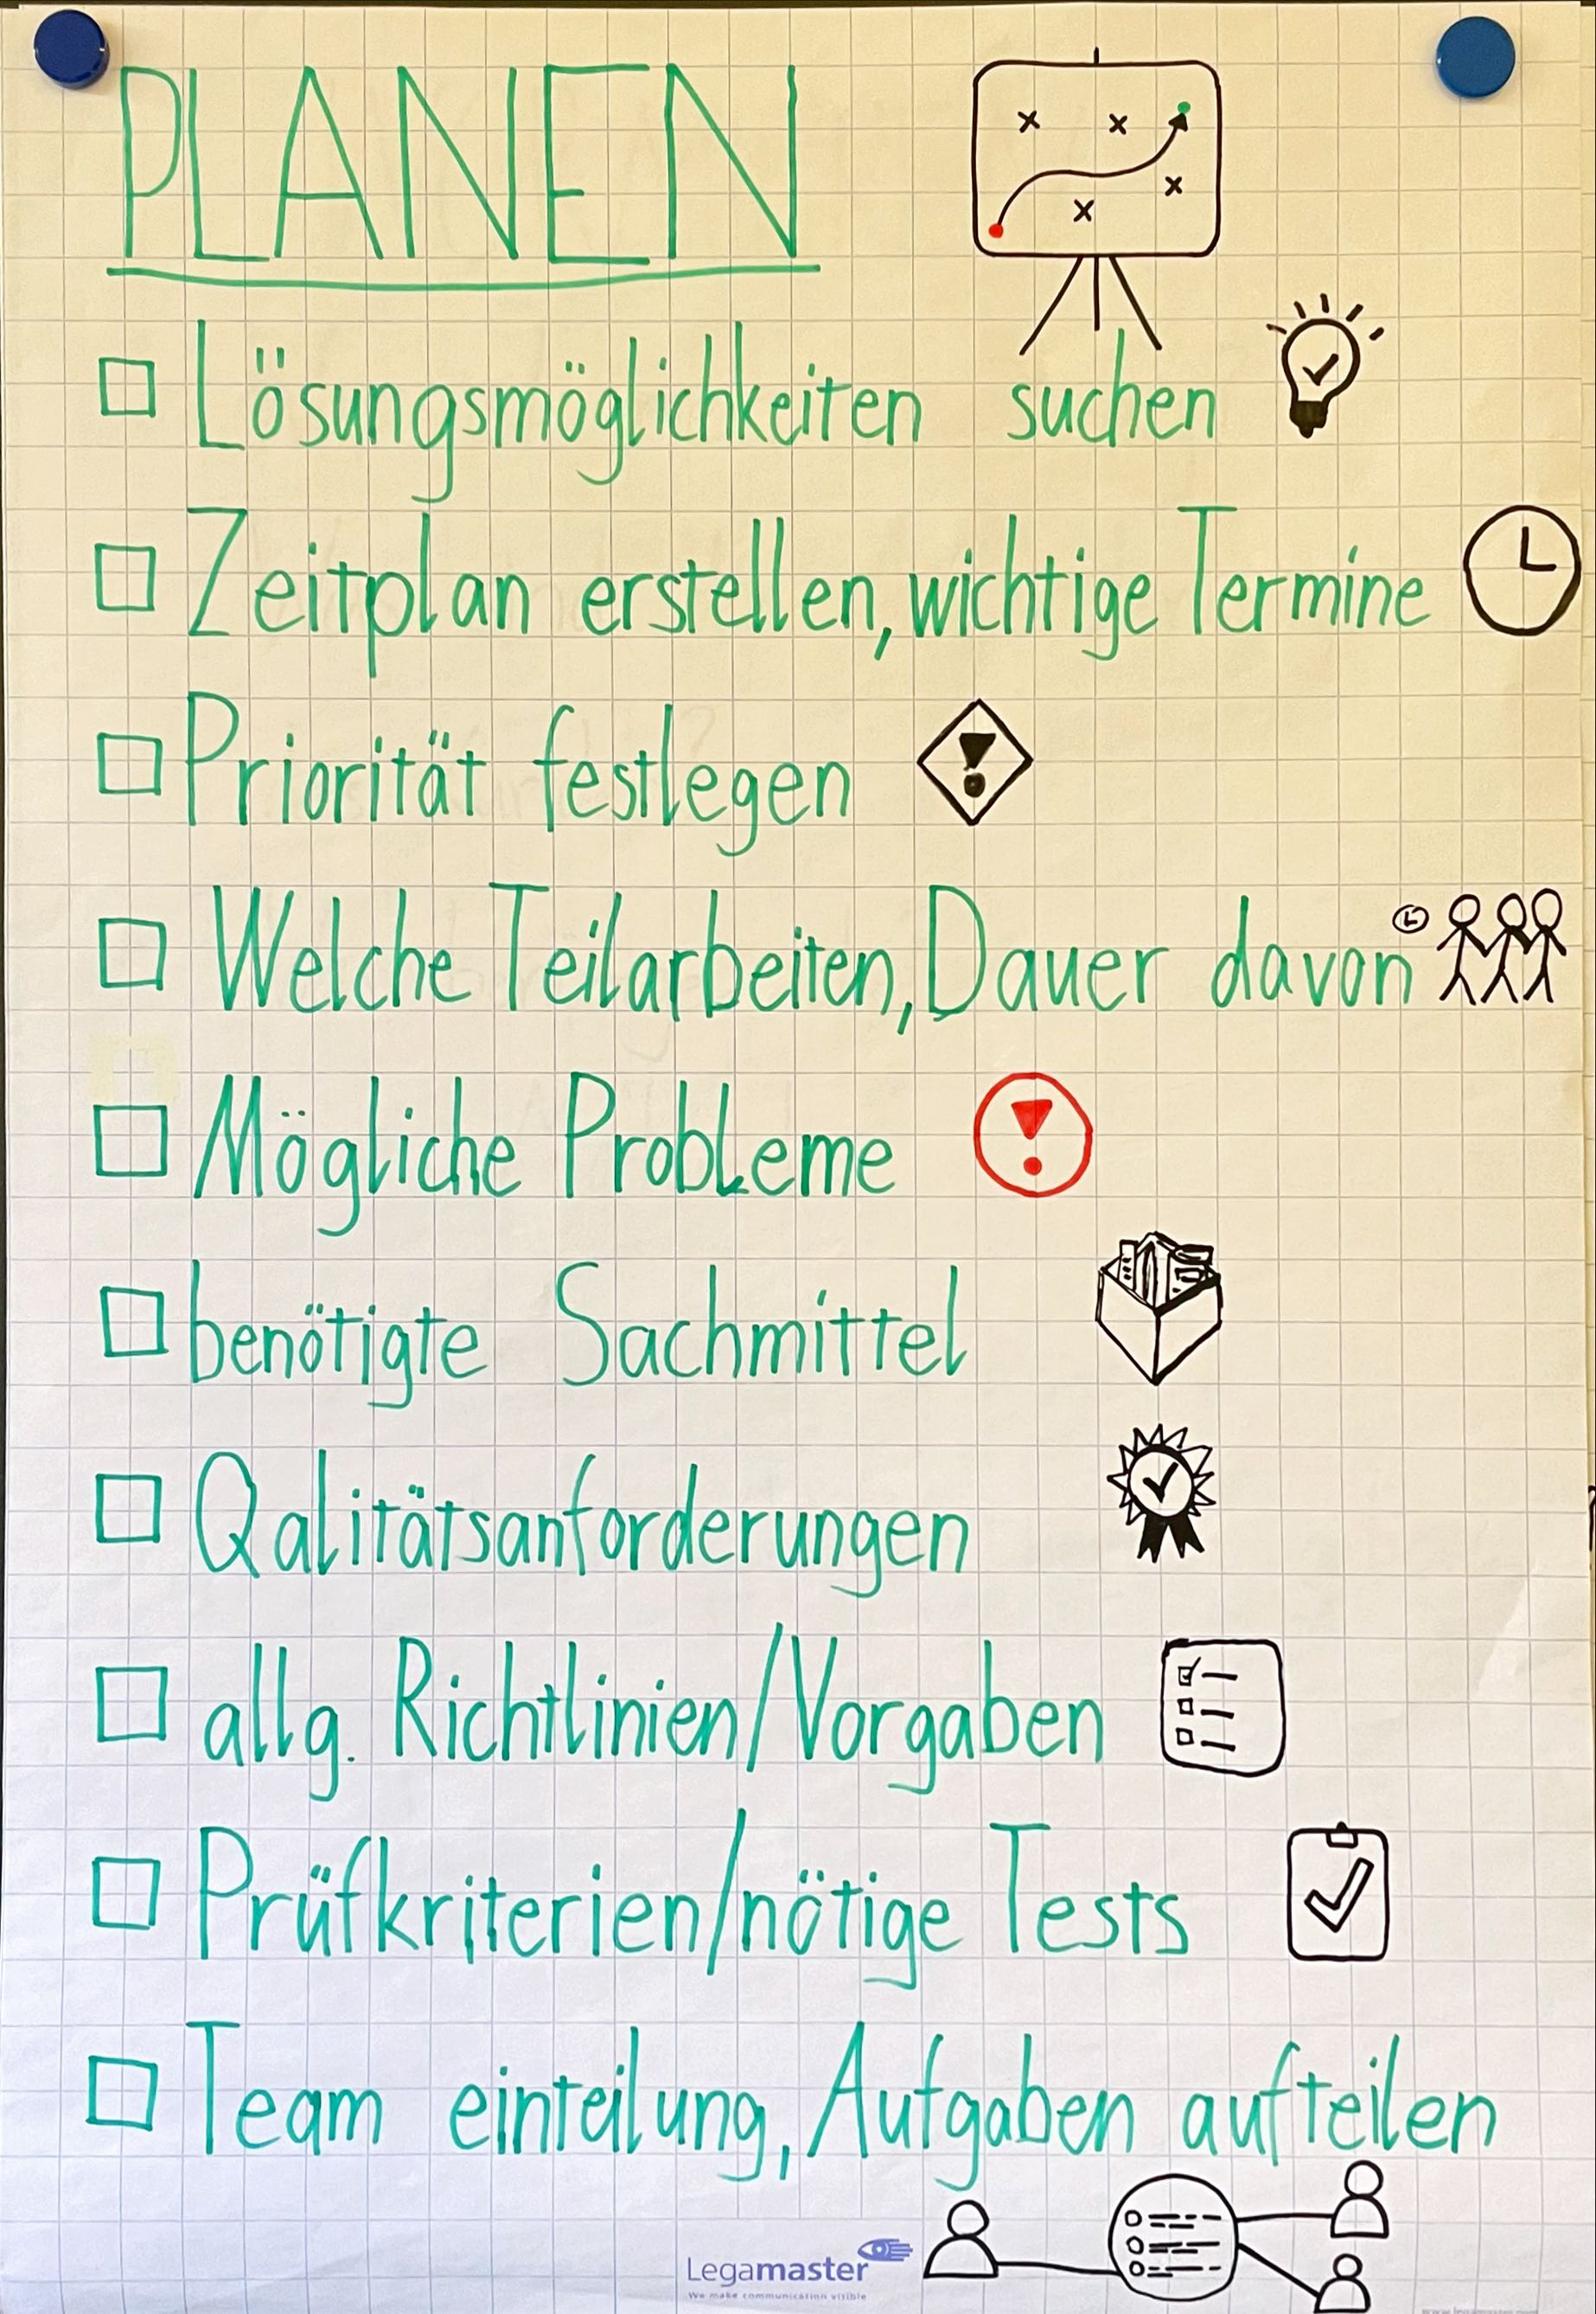 PLANEN
Lösungsmöglichkeiten suchen
Zeitplan erstellen, wichtige Termine
Priorität festlegen
Welche Teilarbeiten, Dauer davon
Mögliche Probleme
benötigte Sachmittel
Qalitätsanforderungen
allg. Richtlinien/Vorgaben
Prüfkriterien/nötige Tests
Team einteilung, Aufgaben aufteilen
Legamaster
We make communication visible